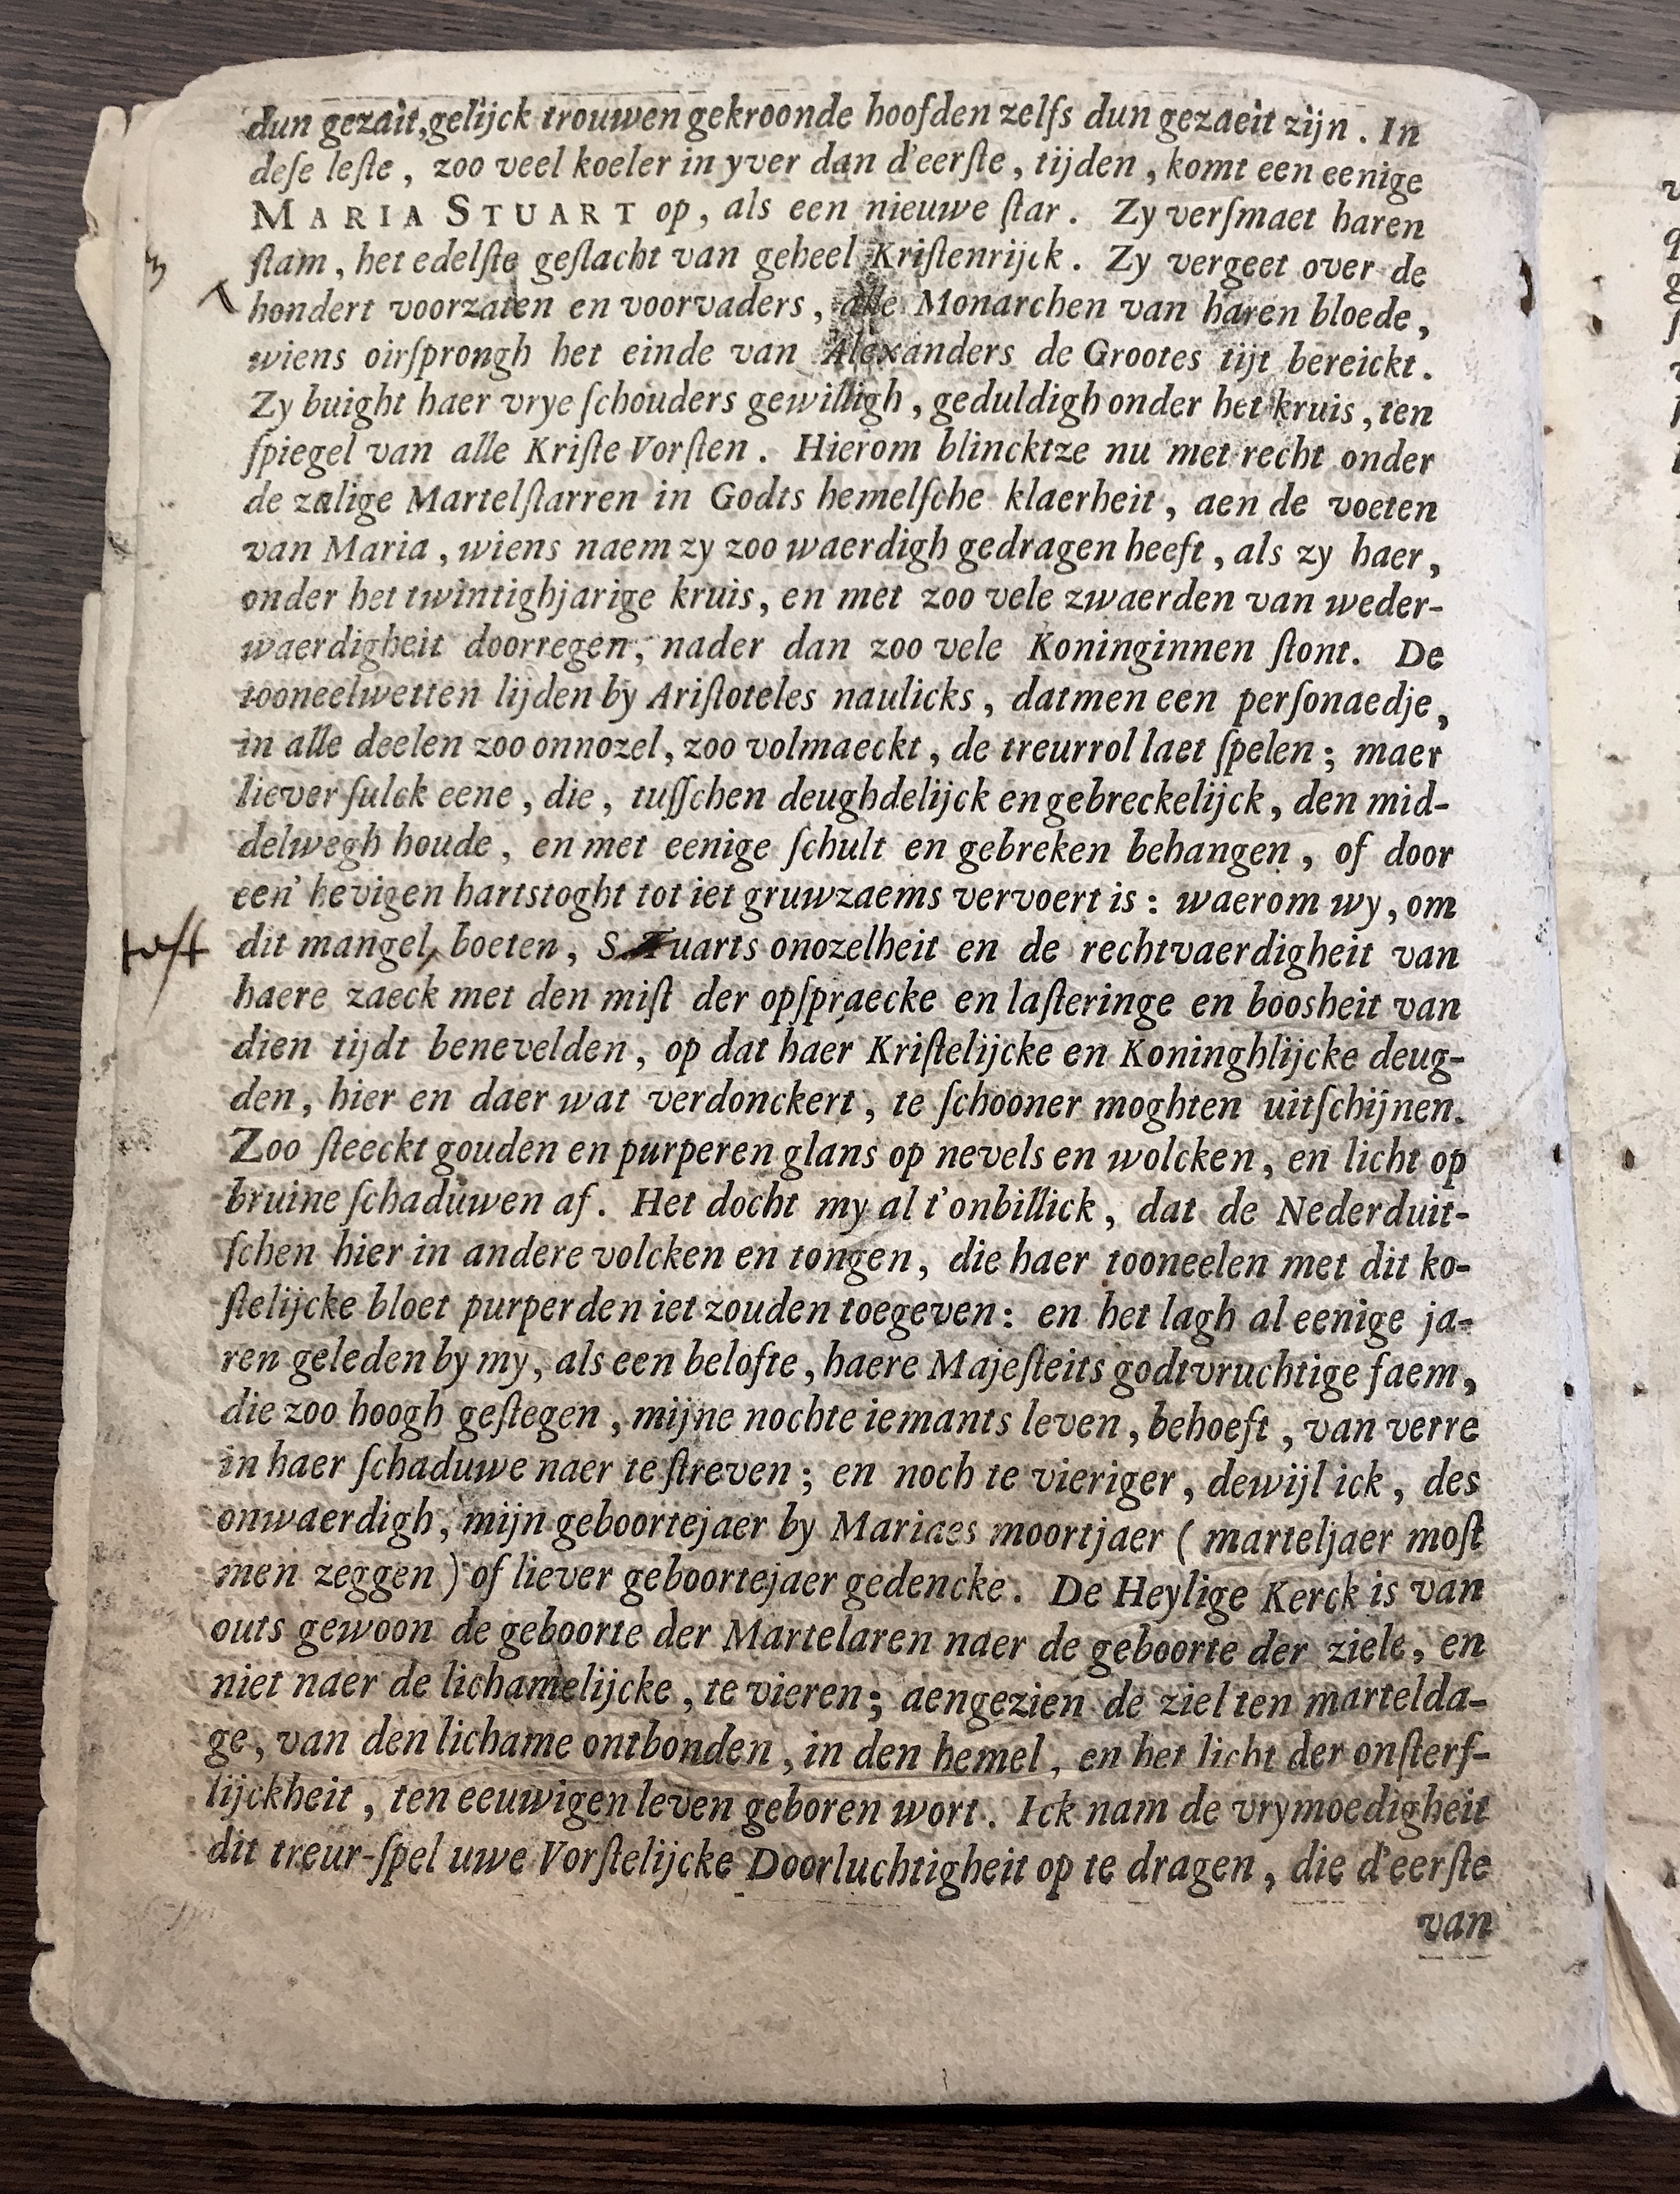 dun gezait, gelijck trouwen gekroonde hoofden zelfs dun gezaeit zijn. In
deſe leſte, zoo veel koeler in yver dan d'eerſte, tijden, komt een eenige
MARIA STUART op, als een nieuwe ſtar. Zy verſmaet haren
ſtam, het edelſte geſlacht van geheel Kriſtenrijck. Zy vergeet over de
hondert voorzaten en voorvaders, alle Monarchen van haren bloede,
wiens oirſprongh het einde van Alexanders de Grootes tijt bereickt.
Zy buight haer vrye ſchouders gewilligh, geduldigh onder het kruis, ten
ſpiegel van alle Kriſte Vorſten. Hierom blincktze nu met recht onder
de zalige Martelſtarren in Godts hemelſche klaerheit, aen de voeten
van Maria, wiens naem zy zoo waerdigh gedragen heeft, als zy haer,
onder het twintighjarige kruis, en met zoo vele zwaerden van weder-
waerdigheit doorregen, nader dan zoo vele Koninginnen ſtont. De
tooneelwetten lijden by Ariſtoteles naulicks, datmen een perſonaedje,
in alle deelen zoo onnozel, zoo volmaeckt, de treurrol laet ſpelen; maer
liever ſulck eene, die, tuſſchen deughdelijck en gebreckelijck, den mid-
delwegh houde, en met eenige ſchult en gebreken behangen, of door
een' hevigen hartstoght tot iet gruwzaems vervoert is: waerom wy, om
dit mangel boeten, S Tuarts onozelheit en de rechtvaerdigheit van
haere zaeck met den miſt der opſpraecke en laſteringe en boosheit van
dien tijdt benevelden, op dat haer Kriſtelijcke en Koninghlijcke deug-
den, hier en daer wat verdonckert, te ſchooner moghten uitſchijnen.
Zoo ſteeckt gouden en purperen glans op nevels en wolcken, en licht op
bruine ſchaduwen af. Het docht my al t'onbillick, dat de Nederduit-
ſchen hier in andere volcken en tongen, die haer tooneelen met dit ko-
ſtelijcke bloet purperden iet zouden toegeven: en het lagh al eenige ja-
ren geleden by my, als een belofte, haere Majeſteits godtvruchtige faem,
die zoo hoogh geſtegen, mijne nochte iemants leven, behoeft, van verre
in haer ſchaduwe naer te ſtreven; en noch te vieriger, dewijl ick, des
onwaerdigh, mijn geboortejaer by Mariaes moortjaer ( marteljaer moſt
men zeggen ) of liever geboortejaer gedencke. De Heylige Kerck is van
outs gewoon de geboorte der Martelaren naer de geboorte der ziele, en
niet naer de lichamelijcke, te vieren; aengezien de ziel ten martelda-
ge, van den lichame ontbonden, in den hemel, en het licht der onſterf-
lijckheit, ten eeuwigen leven geboren wort. Ick nam de vrymoedigheit
dit treur-ſpel uwe Vorſtelijcke Doorluchtigheit op te dragen, die d'eerſte
van